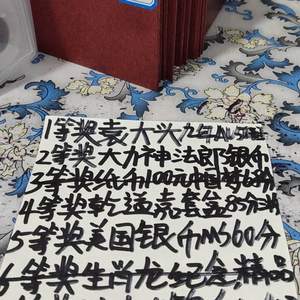 1等奖袁大头九年
2等奖大力神法郎银币
3等奖纸币100元中国梦68分
4等奖乾追嘉套盒85分
5等奖美国银币MS60分
6等奖生肖龙纪念精品